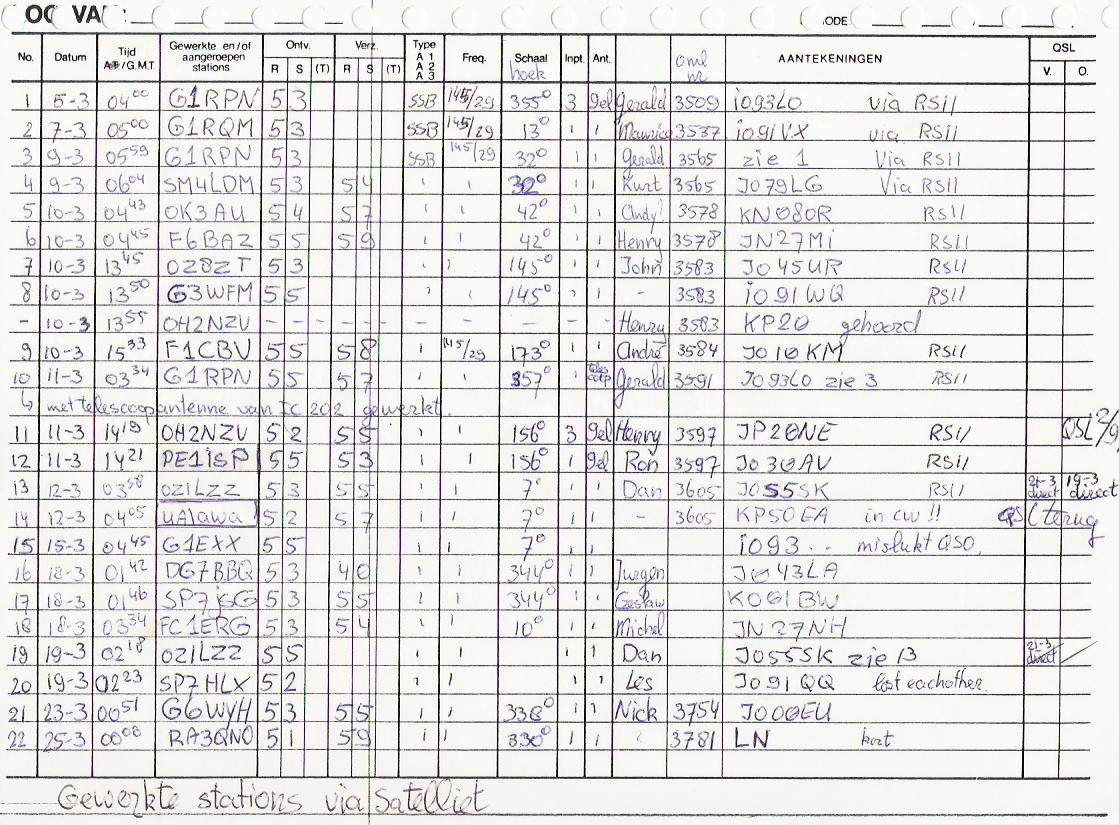 OG VA
ODE
No. Datum Tijd A.T/G.M.T. Gewerkte en/of aangeroepen stations Ontv. R S (T) Verz. R S (T) Type A 1 A 2 A 3 Freq. Schaal hoek Inpt. Ant. oml nr AANTEKENINGEN QSL V. O.
1 5-3 04 00 G1RPN 5 3 SSB 145/29 355° 3 gel Gerald 3509 io93LO via RS11
2 7-3 05 00 G1RQM 5 3 SSB 145/29 13° " Maurice 3537 io91VX via RS11
3 9-3 05 59 G1RPN 5 3 SSB 145/29 32° " Gerald 3565 zie 1 Via RS11
4 9-3 06 04 SM4LDM 5 3 5 4 " 32° " Kurt 3565 JO79LG Via RS11
5 10-3 04 43 OK3AU 5 4 5 7 " 42° " Andy! 3578 KN08OR RS11
6 10-3 04 45 F6BAZ 5 5 5 9 " 42° " Henry 3578 JN27Mi RS11
7 10-3 13 45 OZ8ZT 5 3 " 145° " John 3583 JO45UR RS11
8 10-3 13 50 G3WFM 5 5 145° " - 3583 iO91WQ RS11
- 10-3 13 55 OH2NZV - - - - - - - - - Henry 3583 KP20 gehoord
9 10-3 15 33 F1CBV 5 5 5 8 " 145/29 173° " André 3584 JO10KM RS11
10 11-3 03 34 G1RPN 5 5 5 7 " 357° " teles coop Gerald 3591 JO93LO zie 3 RS11
↳ met telescoop antenne van IC 202 gewerkt.
11 11-3 14 19 OH2NZV 5 2 5 5 " 156° 3 gel Henry 3597 JP20NE RS11 QSL 2/9
12 11-3 14 21 PE1iSP 5 5 5 3 " 156° " gel Ron 3597 JO30AV RS11
13 12-3 03 58 OZ1LZZ 5 3 5 5 " 7° " Dan 3605 JO55SK RS11 21-3 direct 19-3 direct
14 12-3 04 05 UA1awa 5 2 5 7 " 7° " - 3605 KP50EA in cw !! QSL terug
15 15-3 04 45 G1EXX 5 5 " 7° " iO93.. mislukt QSO.
16 18-3 01 42 DG7BBQ 5 3 4 0 " 344° " Jurgen JO43LA
17 18-3 01 46 SP7jSG 5 3 5 5 " 344° " Ceslaw KO61BW
18 18-3 03 34 FC1ERG 5 3 5 4 " 10° " Michel JN27NH
19 19-3 02 18 OZ1LZZ 5 5 " " Dan JO55SK zie 13 21-3 direct
20 19-3 02 23 SP7HLX 5 2 " " Les JO91QQ lost eachother.
21 23-3 00 51 G6WYH 5 3 5 5 " 338° " Nick 3754 JO00EU
22 25-3 00 08 RA3QNO 5 1 5 9 " 330° " 3781 LN kort
Gewerkte stations via Satelliet